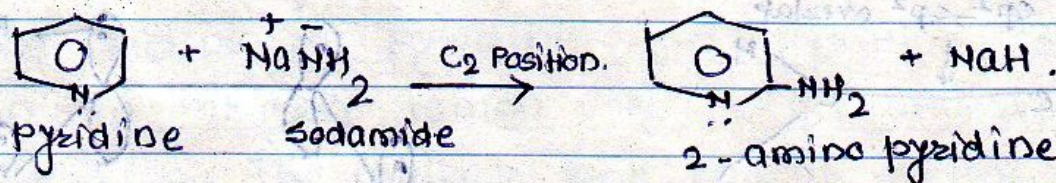 + Na⁺NH₂⁻ C₂ Position. + NaH.
N̈ N̈ NH₂
Pyridine sodamide 2-amino pyridine